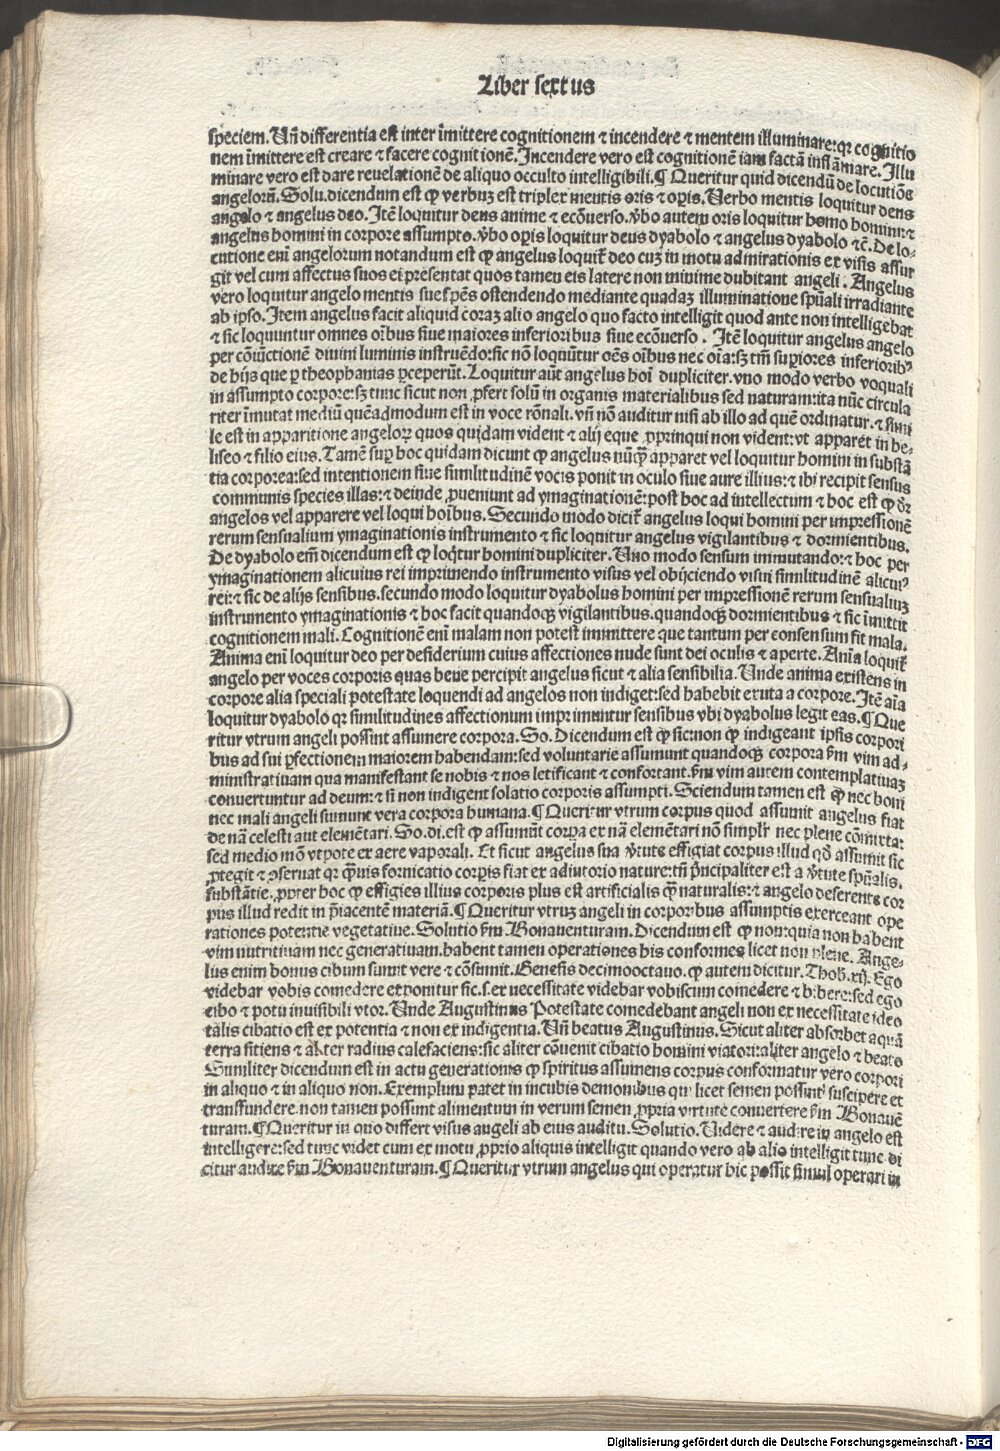 Liber sextus
speciem. Vñ differentia est inter īmittere cognitionem ⁊ incendere ⁊ mentem illuminare: qꝛ cognitio
nem īmittere est creare ⁊ facere cognitionē. Incendere vero est cognitionē iam factā inflāmare. Illu
minare vero est dare reuelationē de aliquo occulto intelligibili. ¶ Queritur quid dicendū de locutiōe
angeloꝝ. Solu. dicendum est ꝙ verbum est triplex mentis oris ⁊ oꝑis. Verbo mentis loquitur deus
angelo ⁊ angelus deo. Itē loquitur deus anime ⁊ ecōuerso. ꝟbo autem oris loquitur homo homini: ⁊
angelus homini in corpore assumpto. ꝟbo oꝑis loquitur deus dyabolo ⁊ angelus dyabolo ⁊c̄. De lo-
cutione enī angelorum notandum est ꝙ angelus loquit̄ deo cuꝫ in motu admirationis ex visis assur
git vel cum affectus suos ei presentat quos tamen eis latere non minime dubitant angeli. Angelus
vero loquitur angelo mentis sue sp̄es ostendendo mediante quadaꝫ illuminatione sp̄uali irradiante
ab ipso. Item angelus facit aliquid coraꝫ alio angelo quo facto intelligit quod ante non intelligebat
⁊ sic loquuntur omnes oībus siue maiores inferioribus siue ecōuerso. Itē loquitur angelus angelo
per cōiūctionē diuini luminis instruēdo: sic nō loquūtur oēs oībus nec oīa: sꝫ tm̄ suꝑiores inferioribꝰ
de hijs que ꝑ theophanias ꝑceperūt. Loquitur aūt angelus hoī dupliciter. vno modo verbo voquali
in assumpto corpore: sꝫ tunc sicut non ꝓfert solū in organis materialibus sed naturam: ita nūc circula
riter īmutat mediū quēadmodum est in voce rōnali. vñ nō auditur nisi ab illo ad quē ordinatur. ⁊ simi
le est in apparitione angeloꝝ quos quidam vident ⁊ alij eque ꝓprinqui non vident: vt apparet in he-
liseo ⁊ filio eius. Tamē suꝑ hoc quidam dicunt ꝙ angelus nūꝙ̄ apparet vel loquitur homini in substā
tia corporea: sed intentionem siue similitudinē vocis ponit in oculo siue aure illius: ⁊ ibi recipit sensus
communis species illas: ⁊ deinde ꝓueniunt ad ymaginationē: post hoc ad intellectum ⁊ hoc est ꝙ dr̄
angelos vel apparere vel loqui hoībus. Secundo modo dicit̄ angelus loqui homini per impressionē
rerum sensualium ymaginationis instrumento ⁊ sic loquitur angelus vigilantibus ⁊ dormientibus.
De dyabolo em̄ dicendum est ꝙ loq̄tur homini dupliciter. Vno modo sensum immutando: ⁊ hoc per
ymaginationem alicuius rei imprimendo instrumento visus vel obijciendo visui similitudinē alicuiꝰ
rei: ⁊ sic de alijs sensibus. secundo modo loquitur dyabolus homini per impressionē rerum sensualiuꝫ
instrumento ymaginationis ⁊ hoc facit quandoqꝫ vigilantibus. quandoqꝫ dormientibus ⁊ sic īmittit
cognitionem mali. Cognitionē enī malam non potest immittere que tantum per consensum fit mala.
Anima enī loquitur deo per desiderium cuius affectiones nude sunt dei oculis ⁊ aperte. Aīa loquit̄
angelo per voces corporis quas bene percipit angelus sicut ⁊ alia sensibilia. Vnde anima existens in
corpore alia speciali potestate loquendi ad angelos non indiget: sed habebit exuta a corpore. Itē aīa
loquitur dyabolo qꝛ similitudines affectionum imprimuntur sensibus vbi dyabolus legit eas. ¶ Que
ritur vtrum angeli possint assumere corpora. So. Dicendum est ꝙ sic: non ꝙ indigeant ipsis corpori
bus ad sui ꝑfectionem maiorem habendam: sed voluntarie assumunt quandoqꝫ corpora s̄m vim ad-
ministratiuam qua manifestant se nobis ⁊ nos letificant ⁊ confortant. s̄m vim autem contemplatiuaꝫ
conuertuntur ad deum: ⁊ sī non indigent solatio corporis assumpti. Sciendum tamen est ꝙ nec boni
nec mali angeli sumunt vera corpora humana. ¶ Queritur vtrum corpus quod assumit angelus fiat
de nā celesti aut elemētari. So. di. est ꝙ assumūt corꝑa ex nā elemētari nō simplr̄ nec plene cōmixta:
sed medio mō vtpote ex aere vaporali. Et sicut angelus sua ꝟtute effigiat corpus illud qd̄ assumit sic
ꝓtegit ⁊ ꝯseruat qꝛ ꝙ̄uis fornicatio corꝑis fiat ex adiutorio nature: tn̄ p̄ncipaliter est a ꝟtute sp̄ualis.
substātie. ꝓpter hoc ꝙ effigies illius corporis plus est artificialis ꝙ̄ naturalis: ⁊ angelo deserente cor
pus illud redit in p̄iacentē materiā. ¶ Queritur vtruꝫ angeli in corporibus assumptis exerceant ope
rationes potentie vegetatiue. Solutio s̄m Bonauenturam. Dicendum est ꝙ non: quia non habent
vim nutritiuam nec generatiuam. habent tamen operationes his conformes licet non plene. Ange-
lus enim bonus cibum sumit vere ⁊ cōsumit. Genesis decimooctauo. ꝙ autem dicitur. Thob. xij. Ego
videbar vobis comedere exponitur sic. s. ex necessitate videbar vobiscum comedere ⁊ bibere: sed ego
cibo ⁊ potu inuisibili vtor. Vnde Augustinus Potestate comedebant angeli non ex necessitate ideo
talis cibatio est ex potentia ⁊ non ex indigentia. Vñ beatus Augustinus. Sicut aliter absorbet aquā
terra sitiens ⁊ aliter radius calefaciens: sic aliter cōuenit cibatio homini viatori: aliter angelo ⁊ beato
Similiter dicendum est in actu generationis ꝙ spiritus assumens corpus conformatur vero corpori
in aliquo ⁊ in aliquo non. Exemplum patet in incubis demonibus qui licet semen possint suscipere et
transfundere. non tamen possunt alimentum in verum semen ꝓpria virtute conuertere s̄m Bonauē
turam. ¶ Queritur in quo differt visus angeli ab eius auditu. Solutio. Videre ⁊ audire in angelo est
intelligere: sed tunc videt cum ex motu ꝓprio aliquis intelligit quando vero ab alio intelligit tunc di
citur audire s̄m Bonauenturam. ¶ Queritur vtrum angelus qui operatur hic possit simul operari in
Digitalisierung gefördert durch die Deutsche Forschungsgemeinschaft - DFG